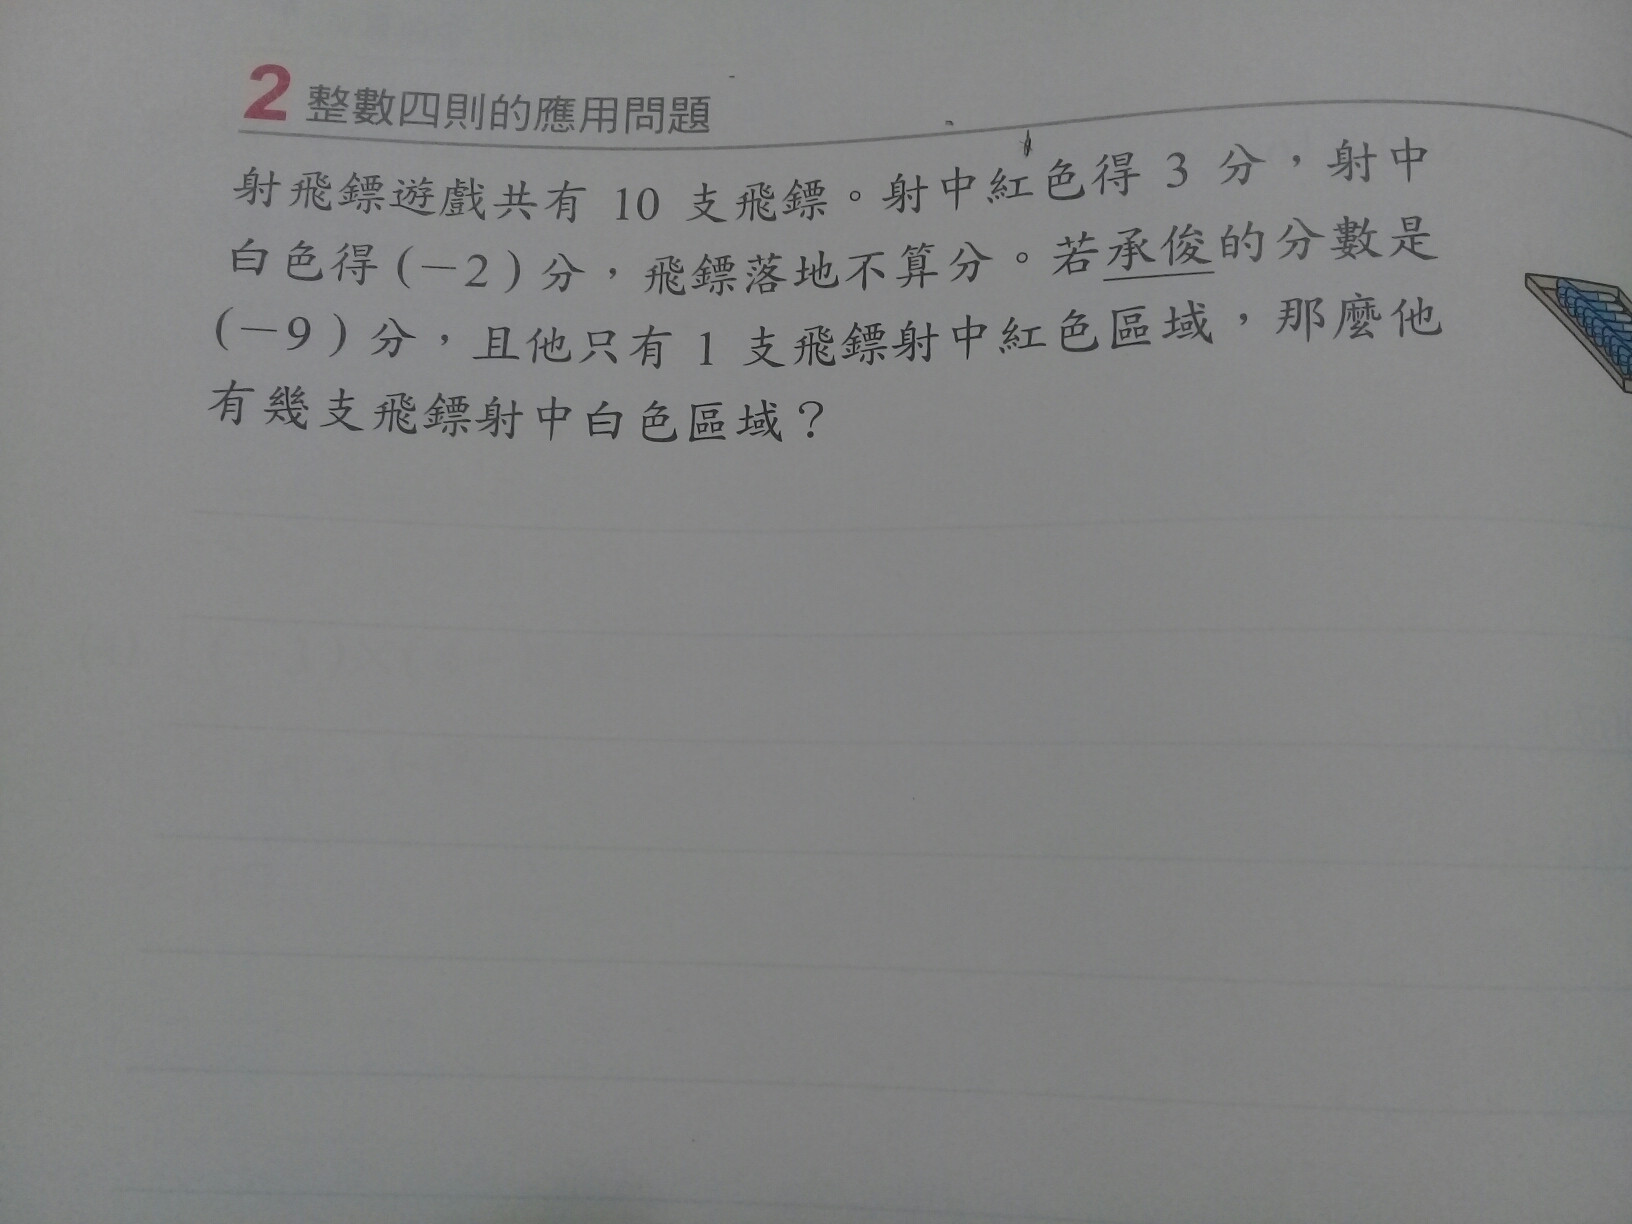 2 整數四則的應用問題
射飛鏢遊戲共有 10 支飛鏢。射中紅色得 3 分，射中
白色得(－2)分，飛鏢落地不算分。若承俊的分數是
(－9)分，且他只有 1 支飛鏢射中紅色區域，那麼他
有幾支飛鏢射中白色區域？